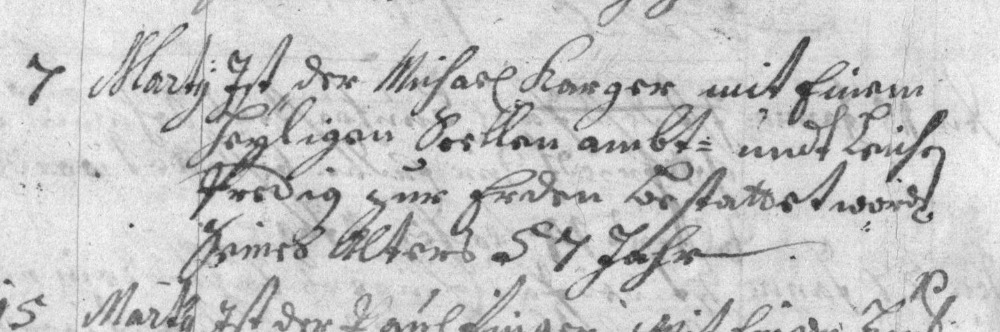 7 Martÿ Ist der Michael Karger mit Einem
heÿligen Seellen ambt= undt Leich
Predig zur Erden bestattet word
Seines Alters 57 Jahr
15 Martÿ Ist der Paul